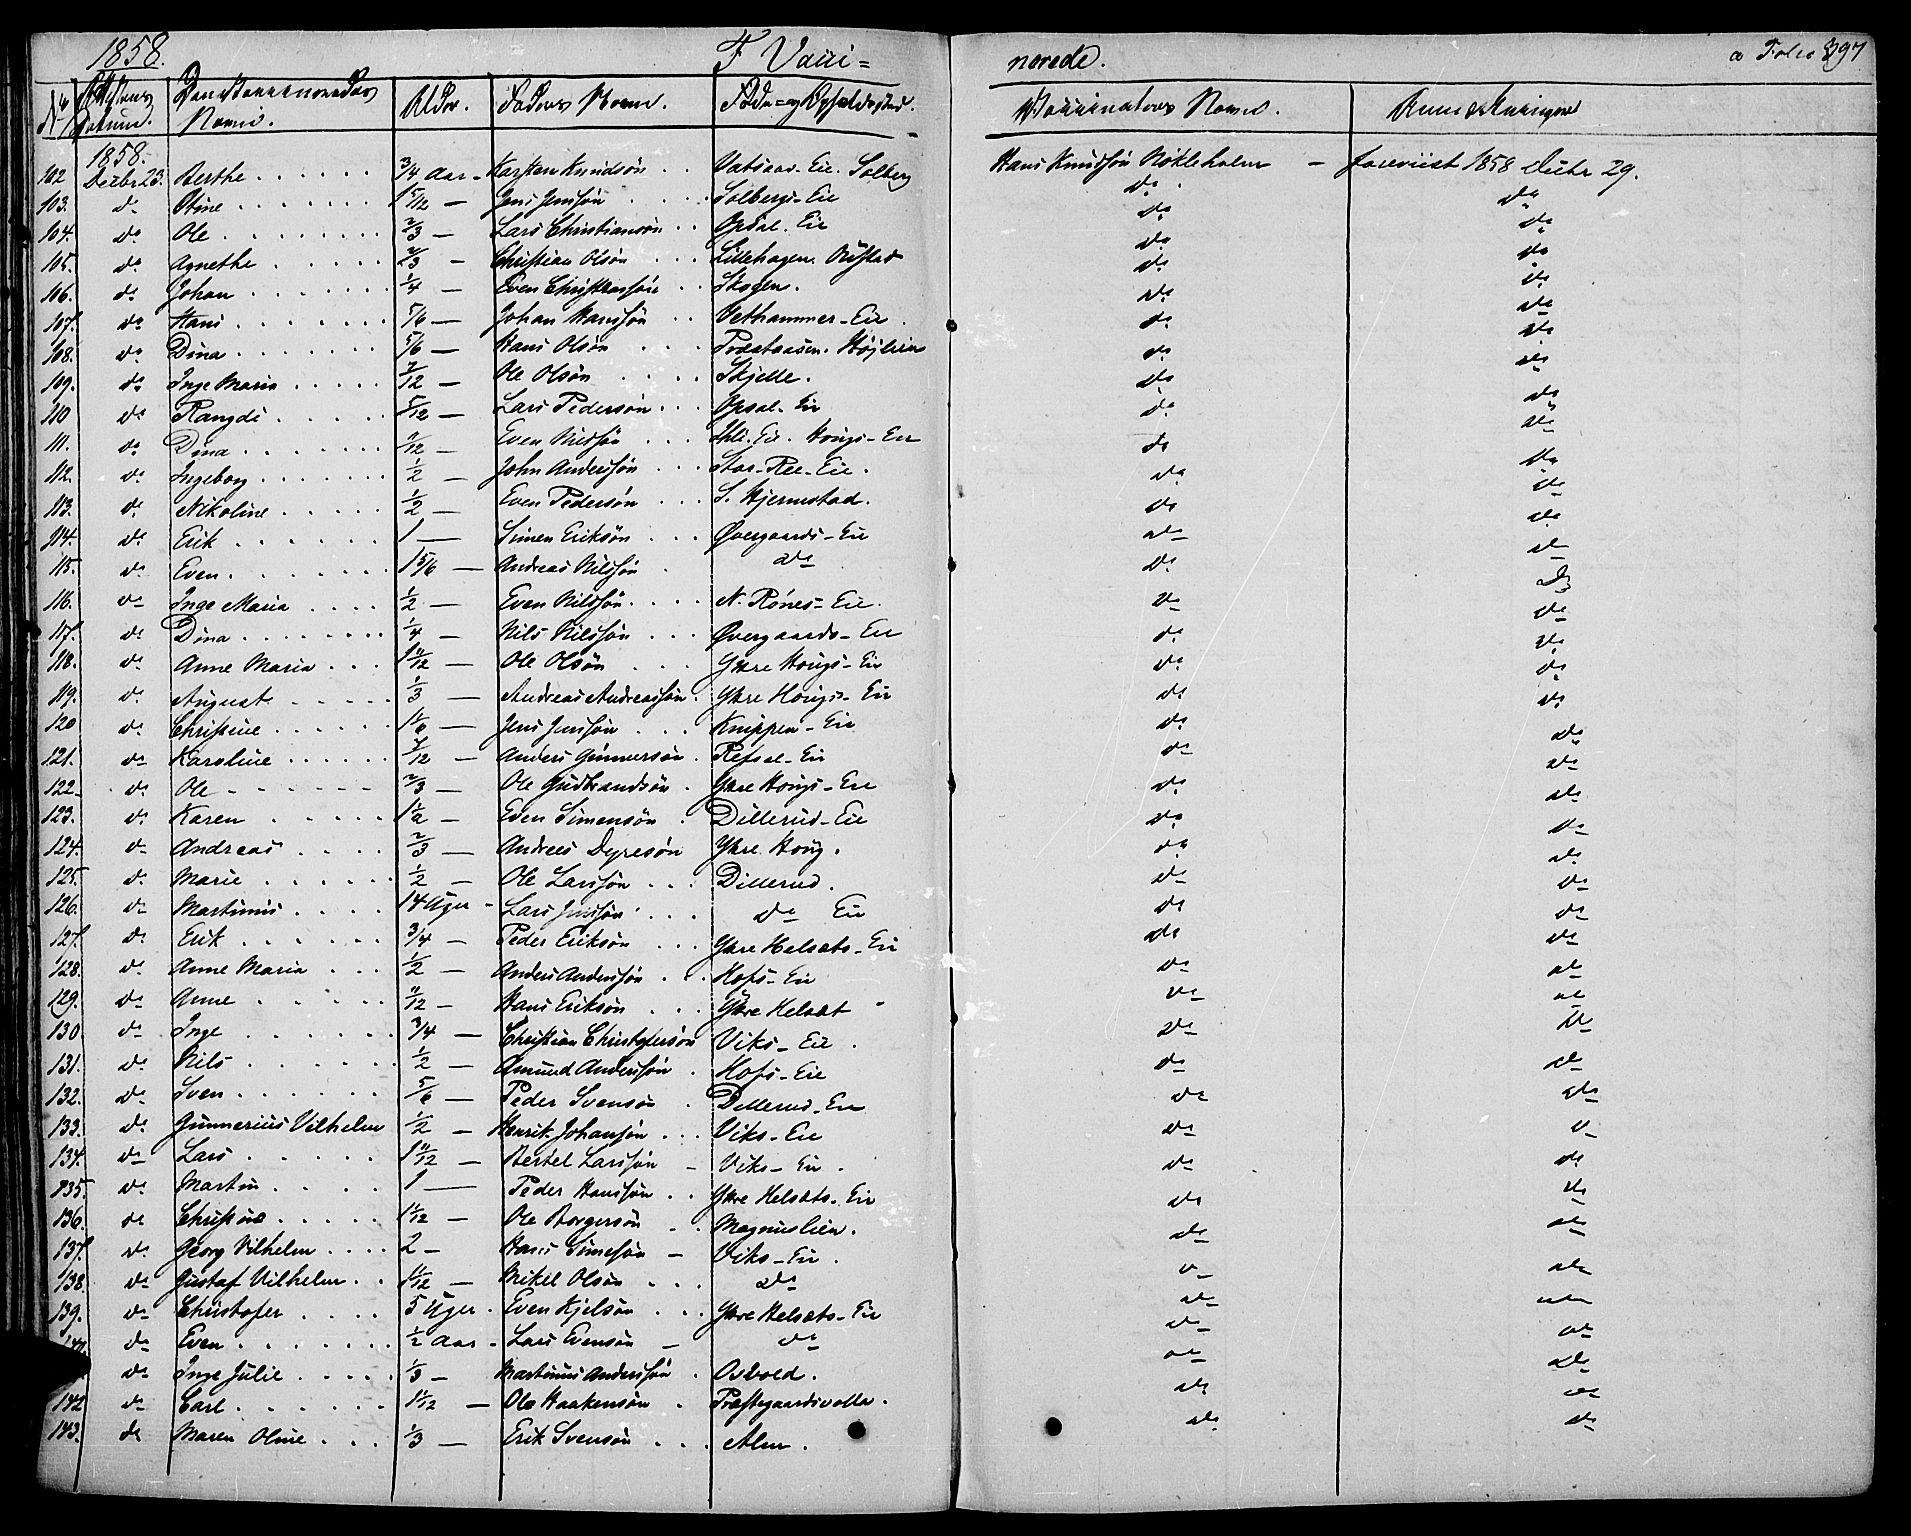 1858. F. Vacci=
nerede. a Folio 397
No Attestens Datum. Den Vaccineredes Navne. Alder. Faders Navne. Føde- og Opholdssted. Vaccinateurs Navne. Anmærkninger
1858.
102 Decbr 23. Berthe 3/4 Aar - Karsten Knudsøn Vatsaas-Eie. Solberg Hans Knudsøn Nøkleholm - foreviist 1858 Decbr 29.
103. do Stine 1 5/12 - Jens Jensøn Solbergs-Eie do do
104. do Ole 2/3 - Lars Christiansøn Opdal-Eie do do
105. do Agnethe 2/3 - Christian Olsøn Lillehagen. Rustad do do
106. do Johan 1/4 - Even Christiansøn Skogen. do do
107. do Hans 5/6 - Johan Hanssøn Vethammer-Eie do do
108. do Dina 5/6 - Hans Olsøn Højlien do do
109. do Inge Maria 7/12 - Ole Olsøn Skjelle. do do
110 do Rangdi 5/12 - Lars Pedersøn Opsal-Eie do do
111. do Dina 11/12 - Even Nilssøn Hougs-Eie do do
112. do Ingeborg 1/2 - John Anderssøn Stor-Ree-Eie. do do
113. do Nikoline 1/2 - Even Pedersøn S. Hjermstad. do do
114. do Erik 1 - Simen Eriksøn Øvergaards-Eie do do
115. do Even 1 5/6 - Andreas Nilssøn do do do
116. do Inge Maria 1/2 - Even Nilssøn N. Rønes-Eie. do do
117. do Dina 1/4 - Nils Nilssøn Øvergaards-Eie do do
118. do Anne Maria 1 11/12 - Ole Olsøn Ykre Hougs-Eie do do
119. do August 1/3 - Andreas Andreassøn Ykre Hougs-Eie do do
120 do Christine 1 1/6 - Jens Jenssøn Knippen-Eie do do
121. do Karoline 7/12 - Anders Gunnersøn Refsal-Eie do do
122 do Ole 2/3 - Ole Gudbrandsøn Ykre Hougs-Eie do do
123. do Karen 1 1/2 - Even Simensøn Dillerud-Eie do do
124. do Andreas 2/3 - Andreas Dyresøn Ykre Houg. do do
125. do Marie 1/2 - Ole Larssøn Dillerud. do do
126. do Martinus 14 Uger - Lars Jenssøn do Eie do do
127. do Erik 3/4 - Peder Eriksøn Ykre Helsæts-Eie do do
128. do Anne Maria 1/2 - Anders Anderssøn Hofs-Eie do do
129. do Anne 11/12 - Hans Eriksøn Ykre Helsæt do do
130 do Inge 3/4 - Christian Christofersøn Viks-Eie do do
131. do Nils 1/2 - Amund Anderssøn Hofs-Eie do do
132. do Sven 5/6 - Peder Svensøn Dillerud-Eie do do
133. do Gunnerius Vilhelm 1/2 - Henrik Johansøn Viks-Eie do do
134. do Lars 1 11/12 - Bertel Larssøn Viks-Eie do do
135. do Martin 1 - Peder Hanssøn Ykre Helsæts-Eie do do
136. do Christine 1 11/12 - Ole Borgersøn Magnuslien. do do
137. do Georg Vilhelm 2 - Hans Simesøn Viks-Eie. do do
138. do Gustaf Vilhelm 1 11/12 - Mikel Olsøn do do do
139. do Christofer 5 Uger. Even Kjelsøn Ykre Helsæts-Eie do do
do Even 1/2 Aar - Lars Evensøn do do do
do Inge Julie 1/3 - Martinus Anderssøn Osvold. do do
142 do Carl 1 1/12 - Ole Haakensøn Præstgaardsvolla. do do
143. do Maren Oline 1/3 - Erik Svensøn Alm. do do